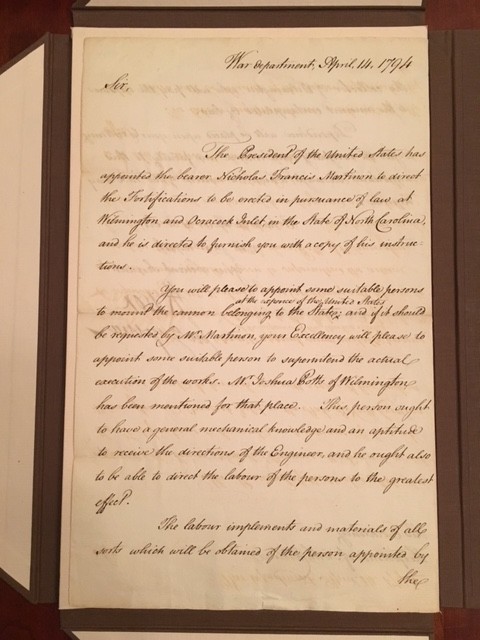 War department, April. 14. 1794
Sir,
The President of the United States has
appointed the bearer Nicholas Francis Martinon to direct
the Fortifications to be erected in pursuance of law, at
Wilmington and Ocracock Inlet, in the State of North Carolina,
and he is directed to furnish you with a copy of his instruc-
tions.
You will please to appoint some suitable persons
at the expence of the United States
to mount the cannon belonging to the State; and if it should
be requested by Mr. Martinon, your Excellency will please to
appoint some suitable person to superintend the actual
execution of the works. Mr. Joshua Potts of Wilmington
has been mentioned for that place. This person ought
to have a general mechanical knowledge and an aptitude
to receive the directions of the Engineer, and he ought also
to be able to direct the labour of the persons to the greatest
effect.
The labour implements and materials of all
sorts which will be obtained of the person appointed by
the